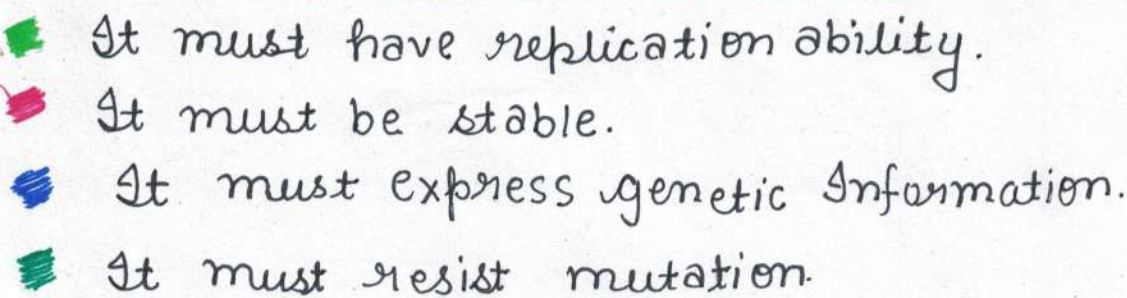 It must have replication ability.
It must be stable.
It must express genetic Information.
It must resist mutation.